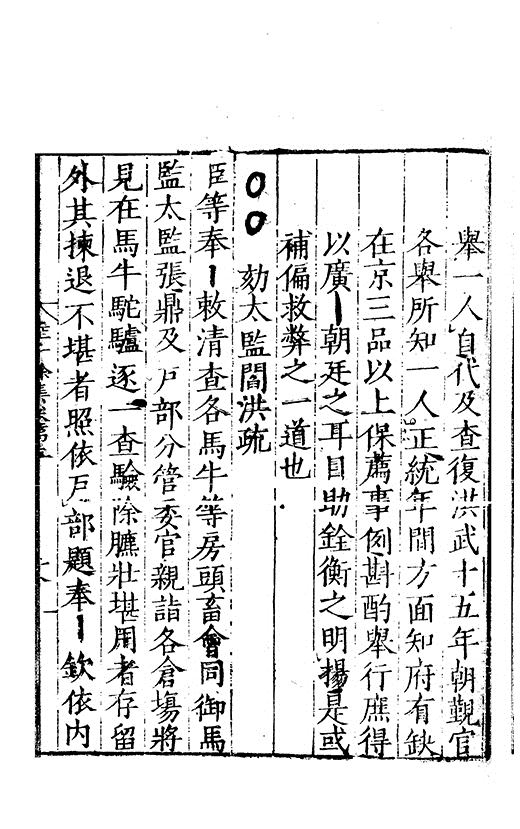 舉一人自代及查復洪武十五年朝覲官
各舉所知一人正統年間方面知府有缺
在京三品以上保薦事例斟酌舉行庶得
以廣朝廷之耳目助銓衡之明揚是或
補偏救弊之一道也
劾太監閻洪疏
臣等奉敕清查各馬牛等房頭畜會同御馬
監太監張鼎及戶部分管委官親詣各倉塲將
見在馬牛駝驢逐一查驗除臕壯堪用者存留
外其揀退不堪者照依戶部題奉欽依內